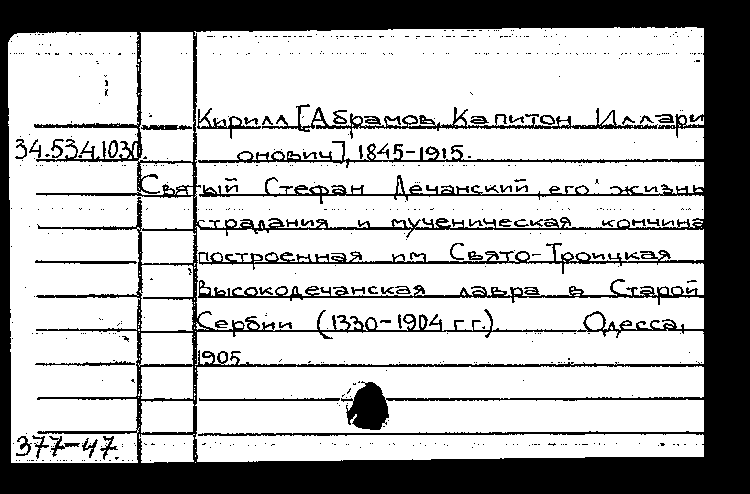 Кирилл [Абрамов, Капитон Иллари
34.534.1030. онович], 1845-1915.
Святый Стефан Дечанский, его жизнь
страдания и мученическая кончина
построенная им Свято-Троицкая
Высокодечанская лавра в Старой
Сербии (1330-1904 гг.). Одесса,
1905.
377-47.